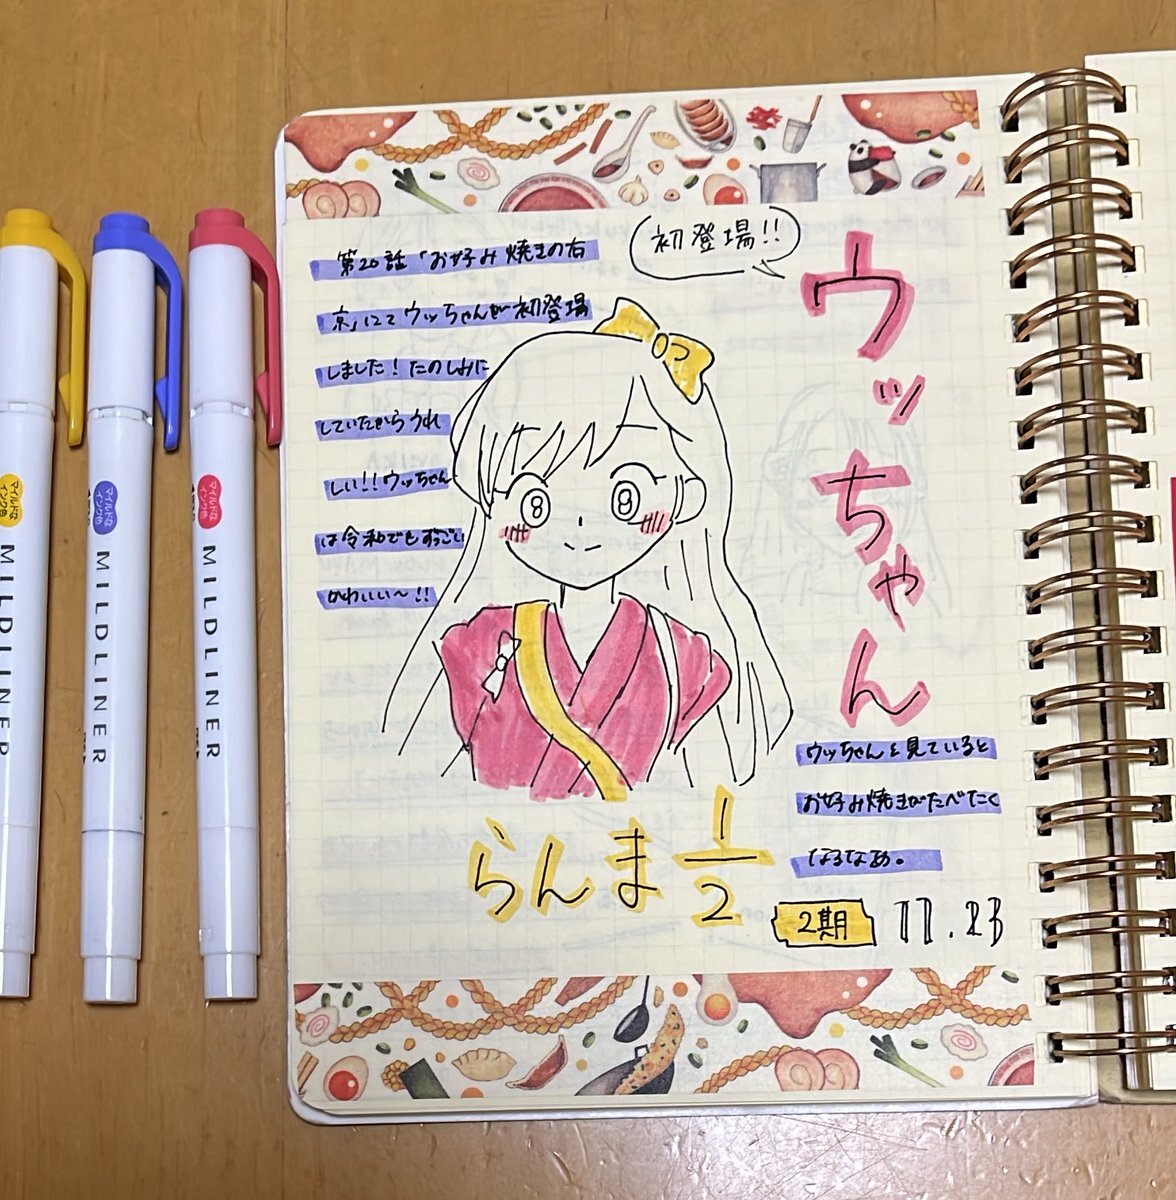 初登場!!
ウッちゃん
第20話「お好み焼きの右
京」にてウッちゃんが初登場
しました!たのしみに
していたからうれ
しい!!ウッちゃん
は令和でもすっごい
かわいい〜!!
ウッちゃんを見ていると
お好み焼きがたべたく
なるなぁ。
らんま1/2
2期
11.23
マイルドな
インク色
MILDLINER
マイルドな
インク色
MILDLINER
マイルドな
インク色
MILDLINER